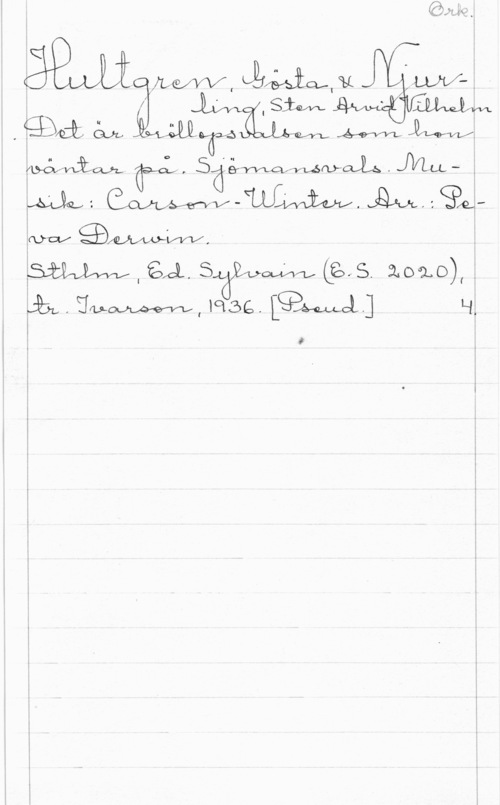 Ork.
Hultgren, Gösta, & Njur-
ling, Sten Arvid Vilhelm
Det är bröllopsvalsen som hon
väntar på. Sjömansvals. Mu-
sik: Carson-Winter. Arr.: Pe-
va Derwin.
Sthlm, Ed. Sylvain (E.S. 2020),
tr. Ivarson, 1936. [Pseud.] 4.